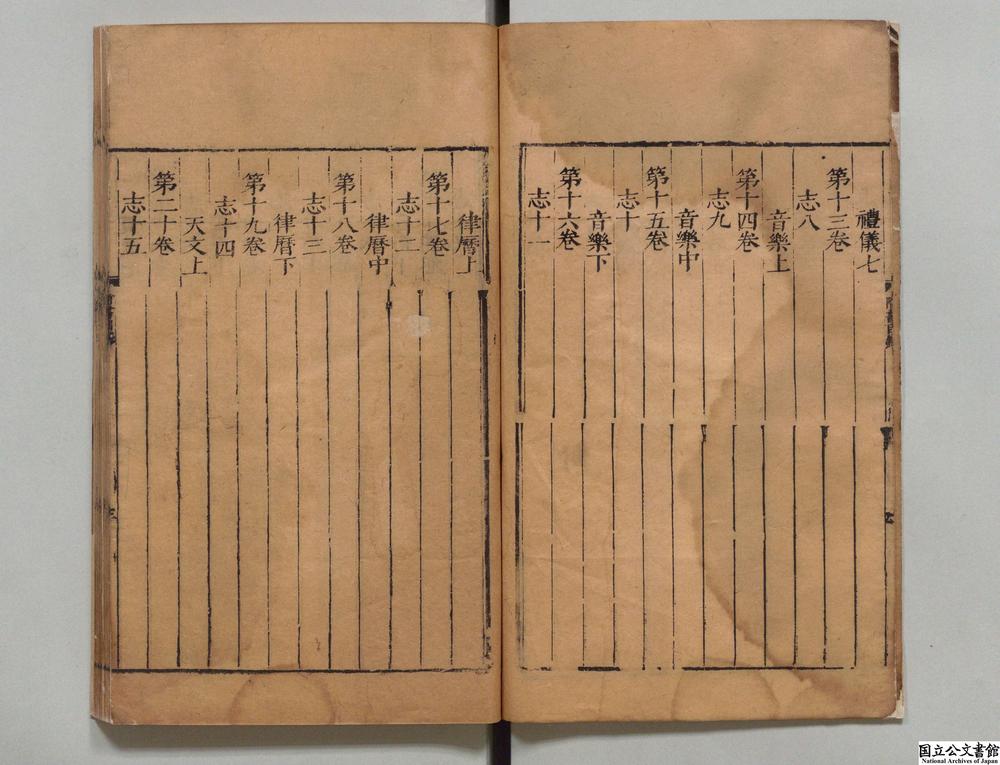 禮儀七
第十三卷
志八
音樂上
第十四卷
志九
音樂中
第十五卷
志十
音樂下
第十六卷
志十一
律曆上
第十七卷
志十二
律曆中
第十八卷
志十三
律曆下
第十九卷
志十四
天文上
第二十卷
志十五
国立公文書館
National Archives of Japan